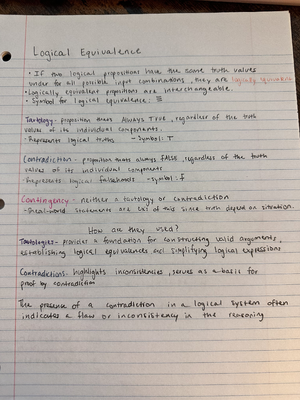 Logical Equivalence
• If two logical propositions have the same truth values
under for all possible input combinations, they are logically equivalent
• Logically equivalent propositions are interchangeable.
• Symbol for logical equivalence: ≡
Tautology - proposition thats Always TRUE, regardless of the truth
values of its individual components.
- Represents logical truths - Symbol: T
Contradiction - proposition thats always FALSE, regardless of the truth
values of its individual components
- Represents logical falsehoods - Symbol: f
Contingency - neither a tautology or contradiction
- Real-world statements are of this since truth depend on situation.
How are they used?
Tautologies - provides a foundation for constructing valid arguments,
establishing logical equivalences and simplifying logical expressions
Contradictions - highlights inconsistencies, serves as a basis for
proof by contradiction
The presence of a contradiction in a logical system often
indicates a flaw or inconsistency in the reasoning